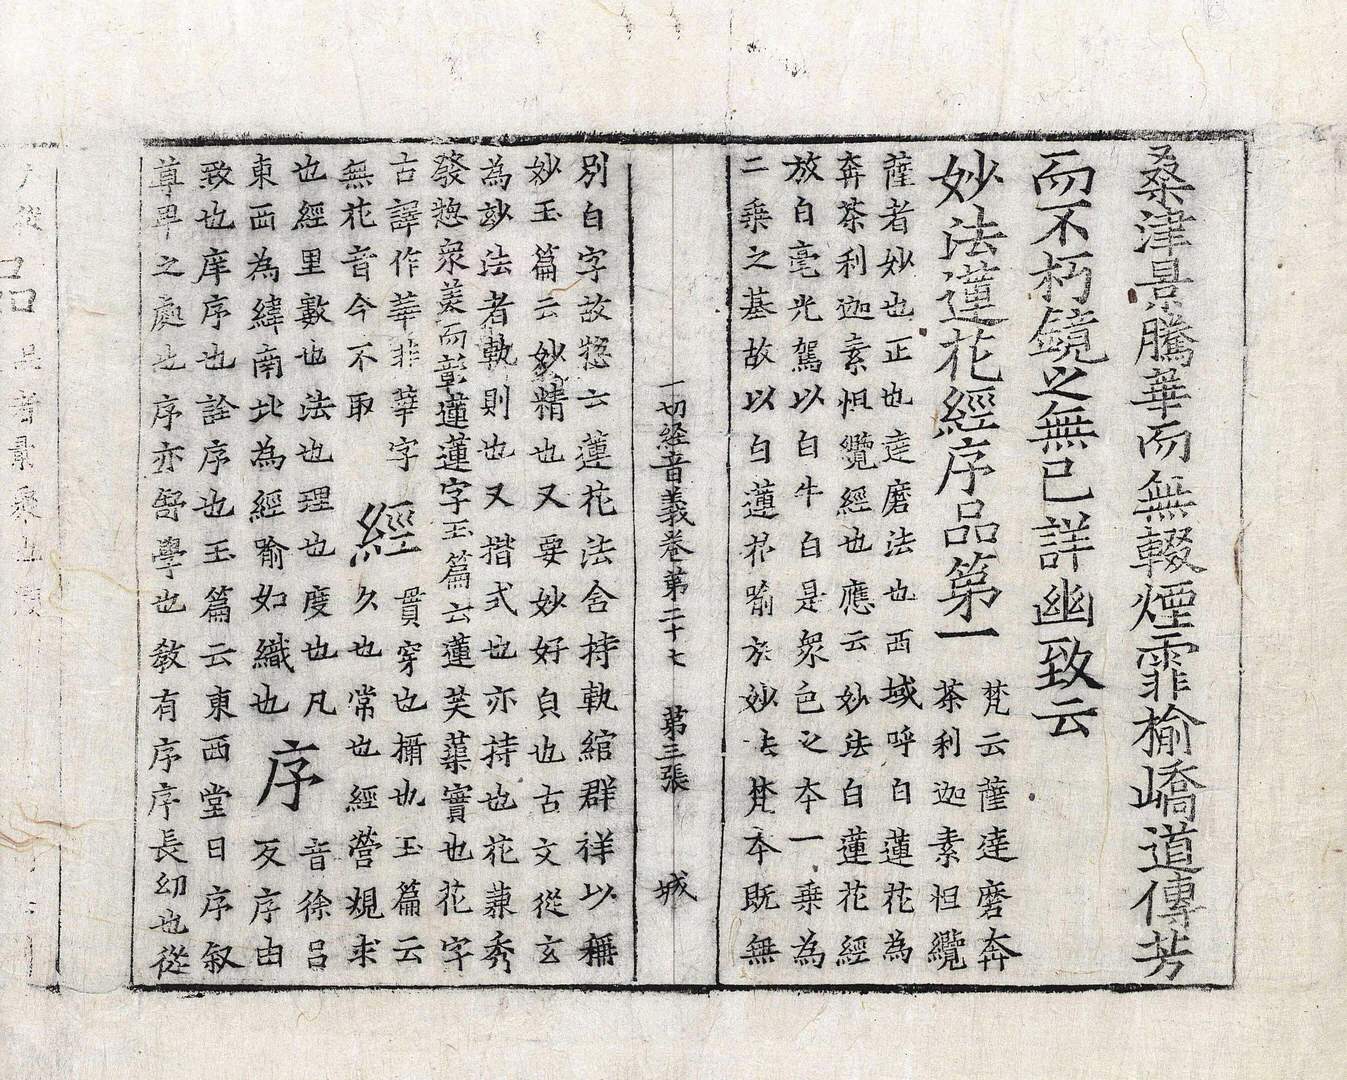 桑津景騰華而無輟煙霏榆嶠道傳芳
而不朽鏡之無已詳幽致云
妙法蓮花經序品第一
梵云薩達磨奔
茶利迦素怛纜
薩者妙也正也達磨法也西域呼白蓮花為
奔茶利迦素怛纜經也應云妙法白蓮花經
放白毫光駕以白牛白是眾色之本一乗為
二乗之基故以白蓮花喻於妙法梵本既無
一切経音義卷第二十七 第三張 城
別白字故惣云蓮花法含持軌綰群祥以稱
妙玉篇云妙精也又要妙好皃也古文從玄
為玅法者軌則也又揩式也亦持也花兼秀
發惣衆美而彰蓮蓮字玉篇云蓮芙蕖實也花字
古譯作華非華字 貫穿也攝也玉篇云
無花音今不取 經 久也常也經營規求
也經里數也法也理也度也凡 音徐呂
東西為緯南北為經喻如織也 序 反序由
致也庠序也詮序也玉篇云東西堂曰序叙
尊卑之處也序亦舒學也教有序序長幼也從